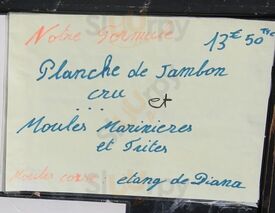 Notre Formule 13€50 TTC
Planche de Jambon
cru
... et
Moules Marinieres
et Frites
Moules corse etang de Diana